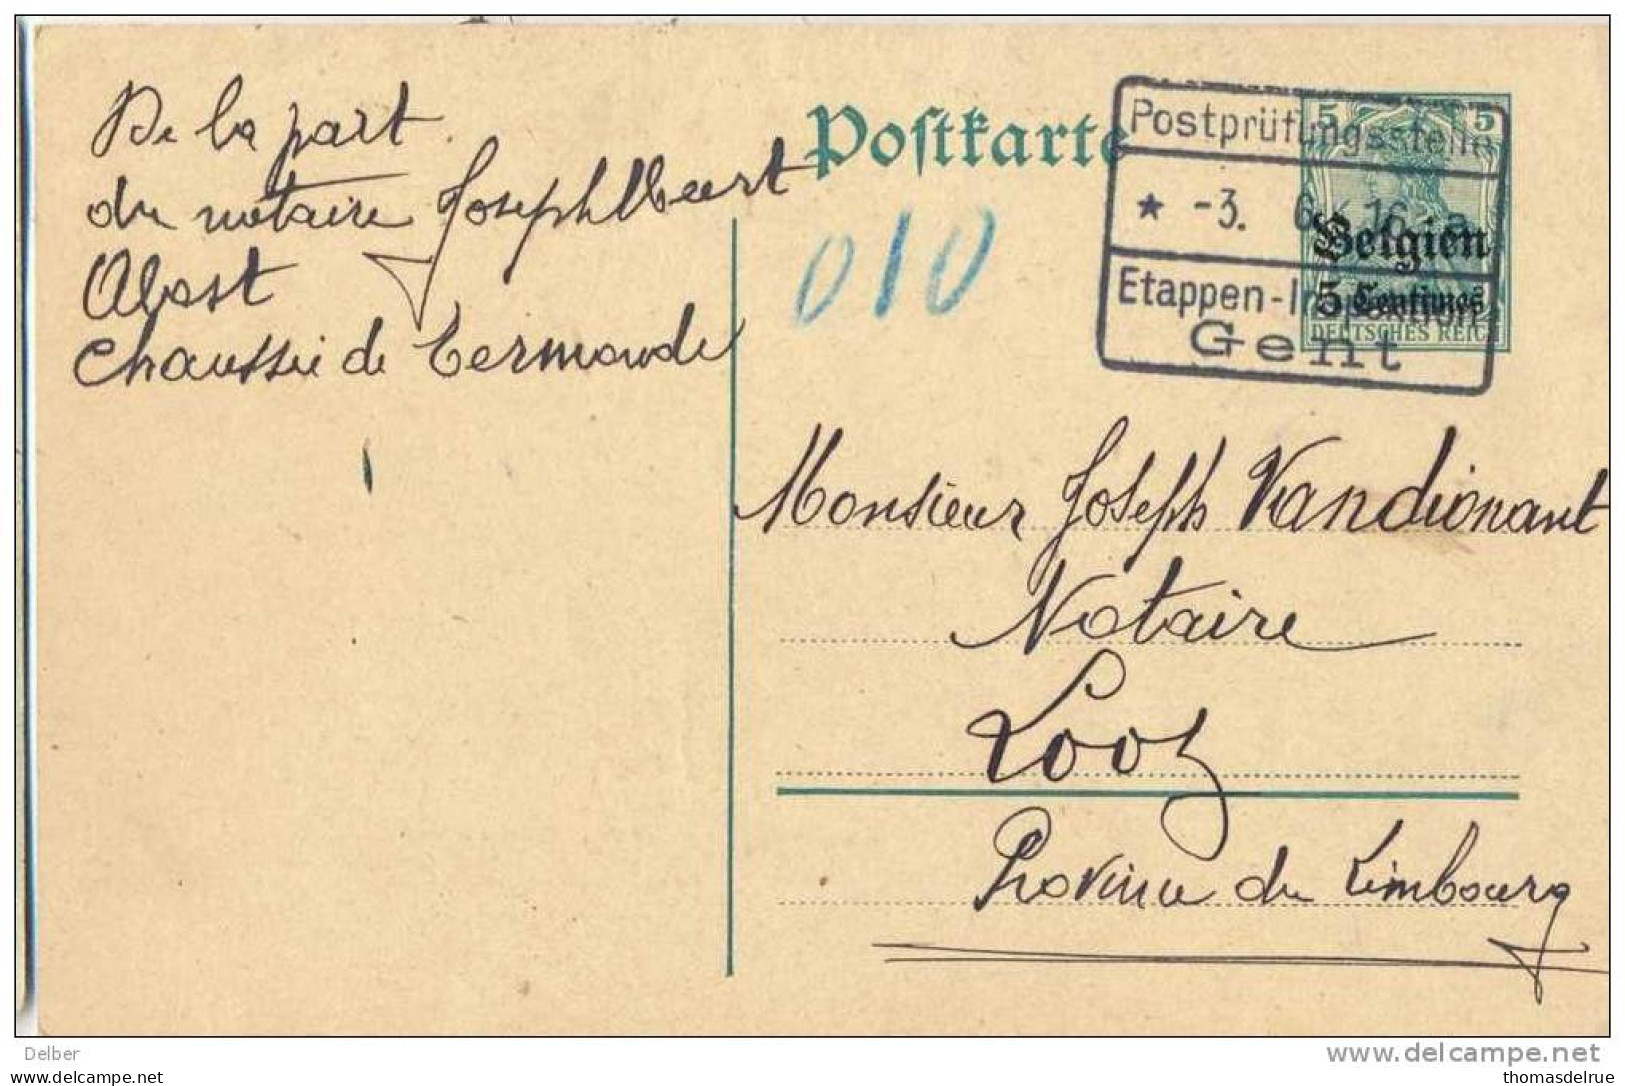 De la part
du notaire Joseph
Alost
Chaussée de Termonde
Postkarte
010
Postprüfungsstelle
* -3. 6. 16 - a
Etappen-Inspektion
Gent
5 5
Belgien
5 Centimes
DEUTSCHES REICH
Monsieur Joseph Vandionant
Notaire
Looz
Province du Limbourg
Delber
www.delcampe.net
piet
thomasdelrue